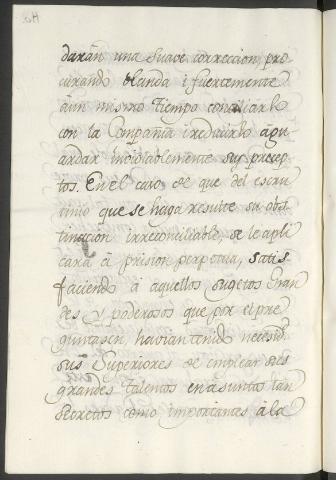 darán una suave correccion, pro
curando blanda i fuertemente
aun mismo tiempo conciliarle
con la Compañia i reducirlo águ
ardar inviolablemente sus precep
tos. En el caso de que del escru
tinio que se haga resulte su obs
tinacion irreconciliable, se le apli
cará á prision perpetua, satis
faciendo á aquellos sugetos gran
des y poderosos que por el pre
guntasen, havian tenido necesid.
sus Superiores de emplear sus
grandes talentos en asuntos tan
secretos como importantes á la